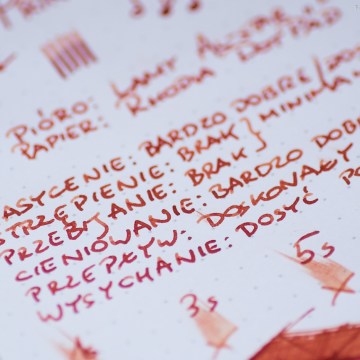 PIÓRO: LAMY
PAPIER: RHODIA DOT PAD
NASYCENIE: BARDZO DOBRE/
STRZĘPIENIE: BRAK } MINIMA
PRZEBIJANIE: BRAK
CIENIOWANIE: BARDZO DOB
PRZEPŁYW: DOSKONAŁY
WYSYCHANIE: DOSYĆ
3s 5s